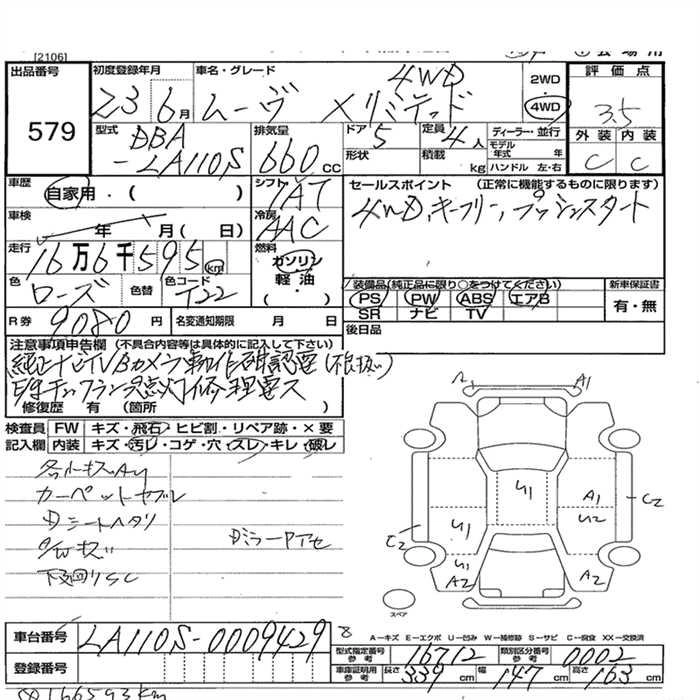 [2106]
出品番号 初度登録年月 車名・グレード 4WD 2WD 評価点
579 23 6月 ムーヴ 4WD 3.5
型式 DBA-LA110S 排気量 660cc ドア 5 定員 4人 ディーラー・並行 外装 内装
形状 積載 kg モデル年式 年 C C
ハンドル 左・右
車歴 自家用・( ) シフト IAT セールスポイント (正常に機能するものに限ります)
車検 年 月( 日) 冷房 AAC 4WD、キーフリー、プッシュスタート
走行 16万6千595km 燃料 ガソリン 軽油 ( ・ )
色 ローズ 色替 色コード T22 装備品(純正品に限り○をつけてください) 新車保証書
PS PW ABS エアB 有・無
SR ナビ TV
R券 9080円 名変通知期限 月 日 後日品
注意事項申告欄 (不具合内容等は具体的に記入して下さい)
純正ナビTVBカメラ動作確認要
修復歴 有 (箇所 )
検査員 FW キズ・飛石・ヒビ割・リペア跡・×要
記入欄 内装 キズ・汚レ・コゲ・穴・スレ・キレ・破レ
カーペットヤブレ
Dシートヘタリ
下廻りSC
A1
U1 A1 U2 C2
U1 C2
U1 A2 A2
スペア
A－キズ E－エクボ U－凹み W－補修跡 S－サビ C－腐食 XX－交換済
車台番号 LA110S-0009429 8
型式指定番号 参考 16712 類別区分番号 参考 0002
登録番号 車庫証明用 参考 長さ 339cm 幅 147cm 高さ 163cm
166593km